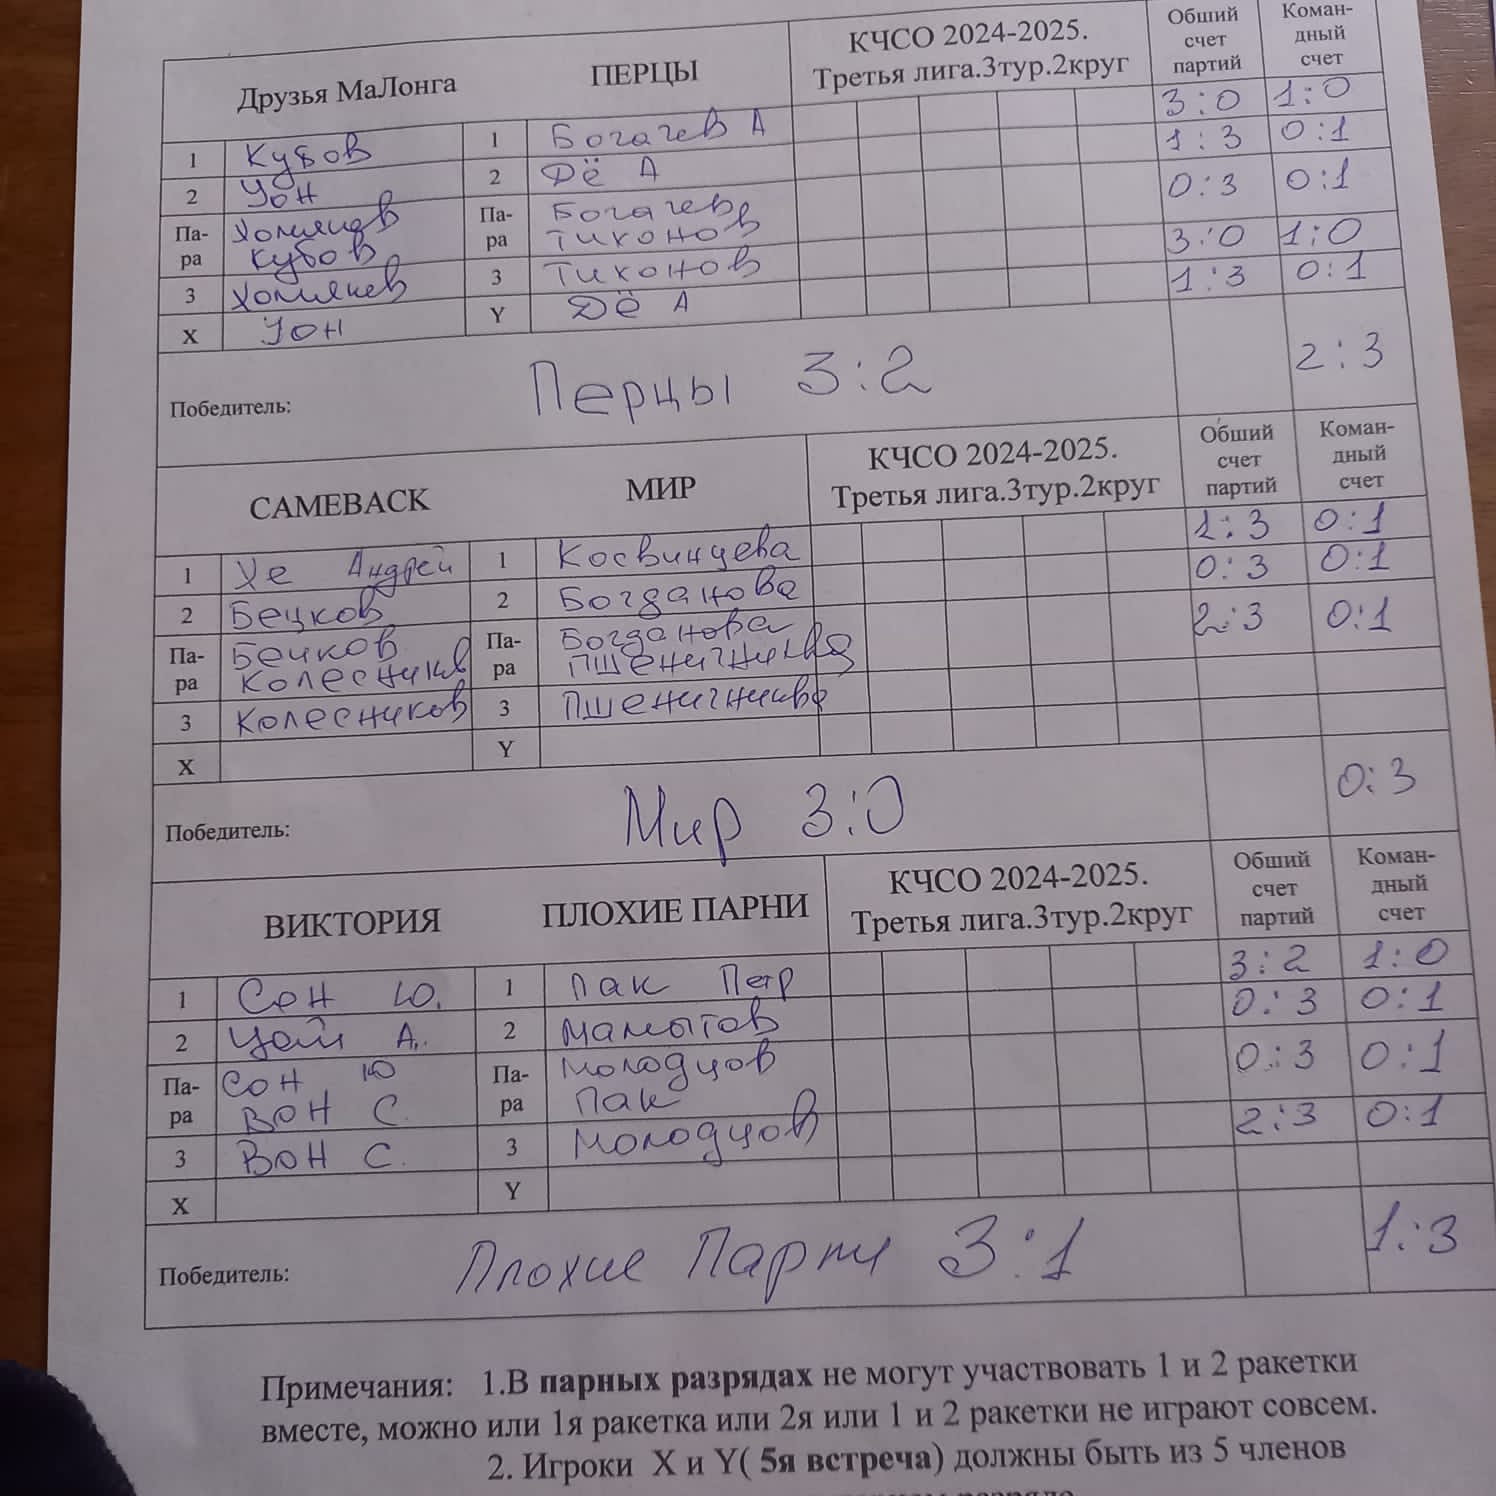 Друзья МаЛонга ПЕРЦЫ КЧСО 2024-2025. Третья лига.3тур.2круг Обший счет партий Коман-дный счет
1 Кубов 1 Богачев А 3:0 1:0
2 Уон 2 Дё А 1:3 0:1
Па-ра Хомяков Кубов Па-ра Богачев Тихонов 0:3 0:1
3 Хомяков 3 Тихонов 3:0 1:0
X Уон Y Дё А 1:3 0:1
Победитель: Перцы 3:2 2:3
CAMEBACK МИР КЧСО 2024-2025. Третья лига.3тур.2круг Обший счет партий Коман-дный счет
1 Хе Андрей 1 Косвинцева 1:3 0:1
2 Бецков 2 Богданова 0:3 0:1
Па-ра Бецков Колесников Па-ра Богданова Пшеничникова 2:3 0:1
3 Колесников 3 Пшеничникова
X Y
Победитель: Мир 3:0 0:3
ВИКТОРИЯ ПЛОХИЕ ПАРНИ КЧСО 2024-2025. Третья лига.3тур.2круг Обший счет партий Коман-дный счет
1 Сон Ю. 1 Пак Петр 3:2 1:0
2 Цой А. 2 Мамытов 0:3 0:1
Па-ра Сон Ю Вон С. Па-ра Молодцов Пак 0:3 0:1
3 Вон С. 3 Молодцов 2:3 0:1
X Y
Победитель: Плохие Парни 3:1 1:3
Примечания: 1.В парных разрядах не могут участвовать 1 и 2 ракетки
вместе, можно или 1я ракетка или 2я или 1 и 2 ракетки не играют совсем.
2. Игроки X и Y( 5я встреча) должны быть из 5 членов